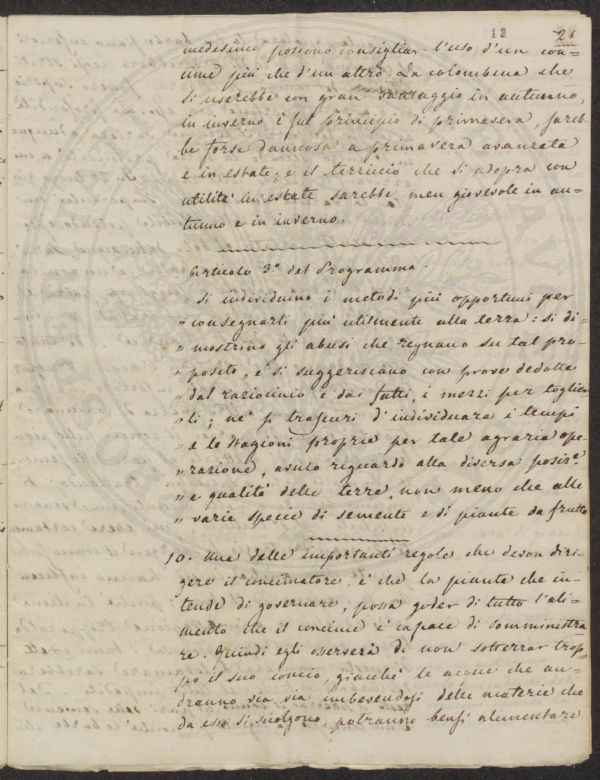 12
21
medesimi possono consigliar l'uso d'un con=
cime più che d'un altro. La colombina che
si userebbe con gran vantaggio in autunno,
in inverno i sul principio di primavera, sareb=
be forse dannosa a primavera avanzata
e in estate; e il terriccio che si adopra con
utilità in estate sarebbe men giovevole in au=
tunno e in inverno.
Articolo 3º del Programma.
" Si individuino i metodi più opportuni per
" consegnarli più utilmente alla terra: si di=
" mostrino gli abusi che regnano su tal pro=
" posito, e si suggeriscano con prove dedotte
" dal raziocinio e dai fatti, i mezzi per toglier
" li; nè si trascuri d'individuare i tempi
" e le stagioni proprie per tale agraria ope=
" razione, avuto riguardo alla diversa posiz.e
" e qualità delle terre, non meno che alle
" varie specie di semente e di piante da frutto
10. Una delle importanti regole che devon diri=
gere il concimatore, è che la pianta che in=
tende di governare, possa goder di tutto l'ali=
mento che il concime è capace di somministra
re. Quindi egli osserverà di non sotterrar trop=
po il suo concio, giacchè le acque che an=
dranno via via imbevendosi delle materie che
da esso si sciolgono, potranno bensì alimentare